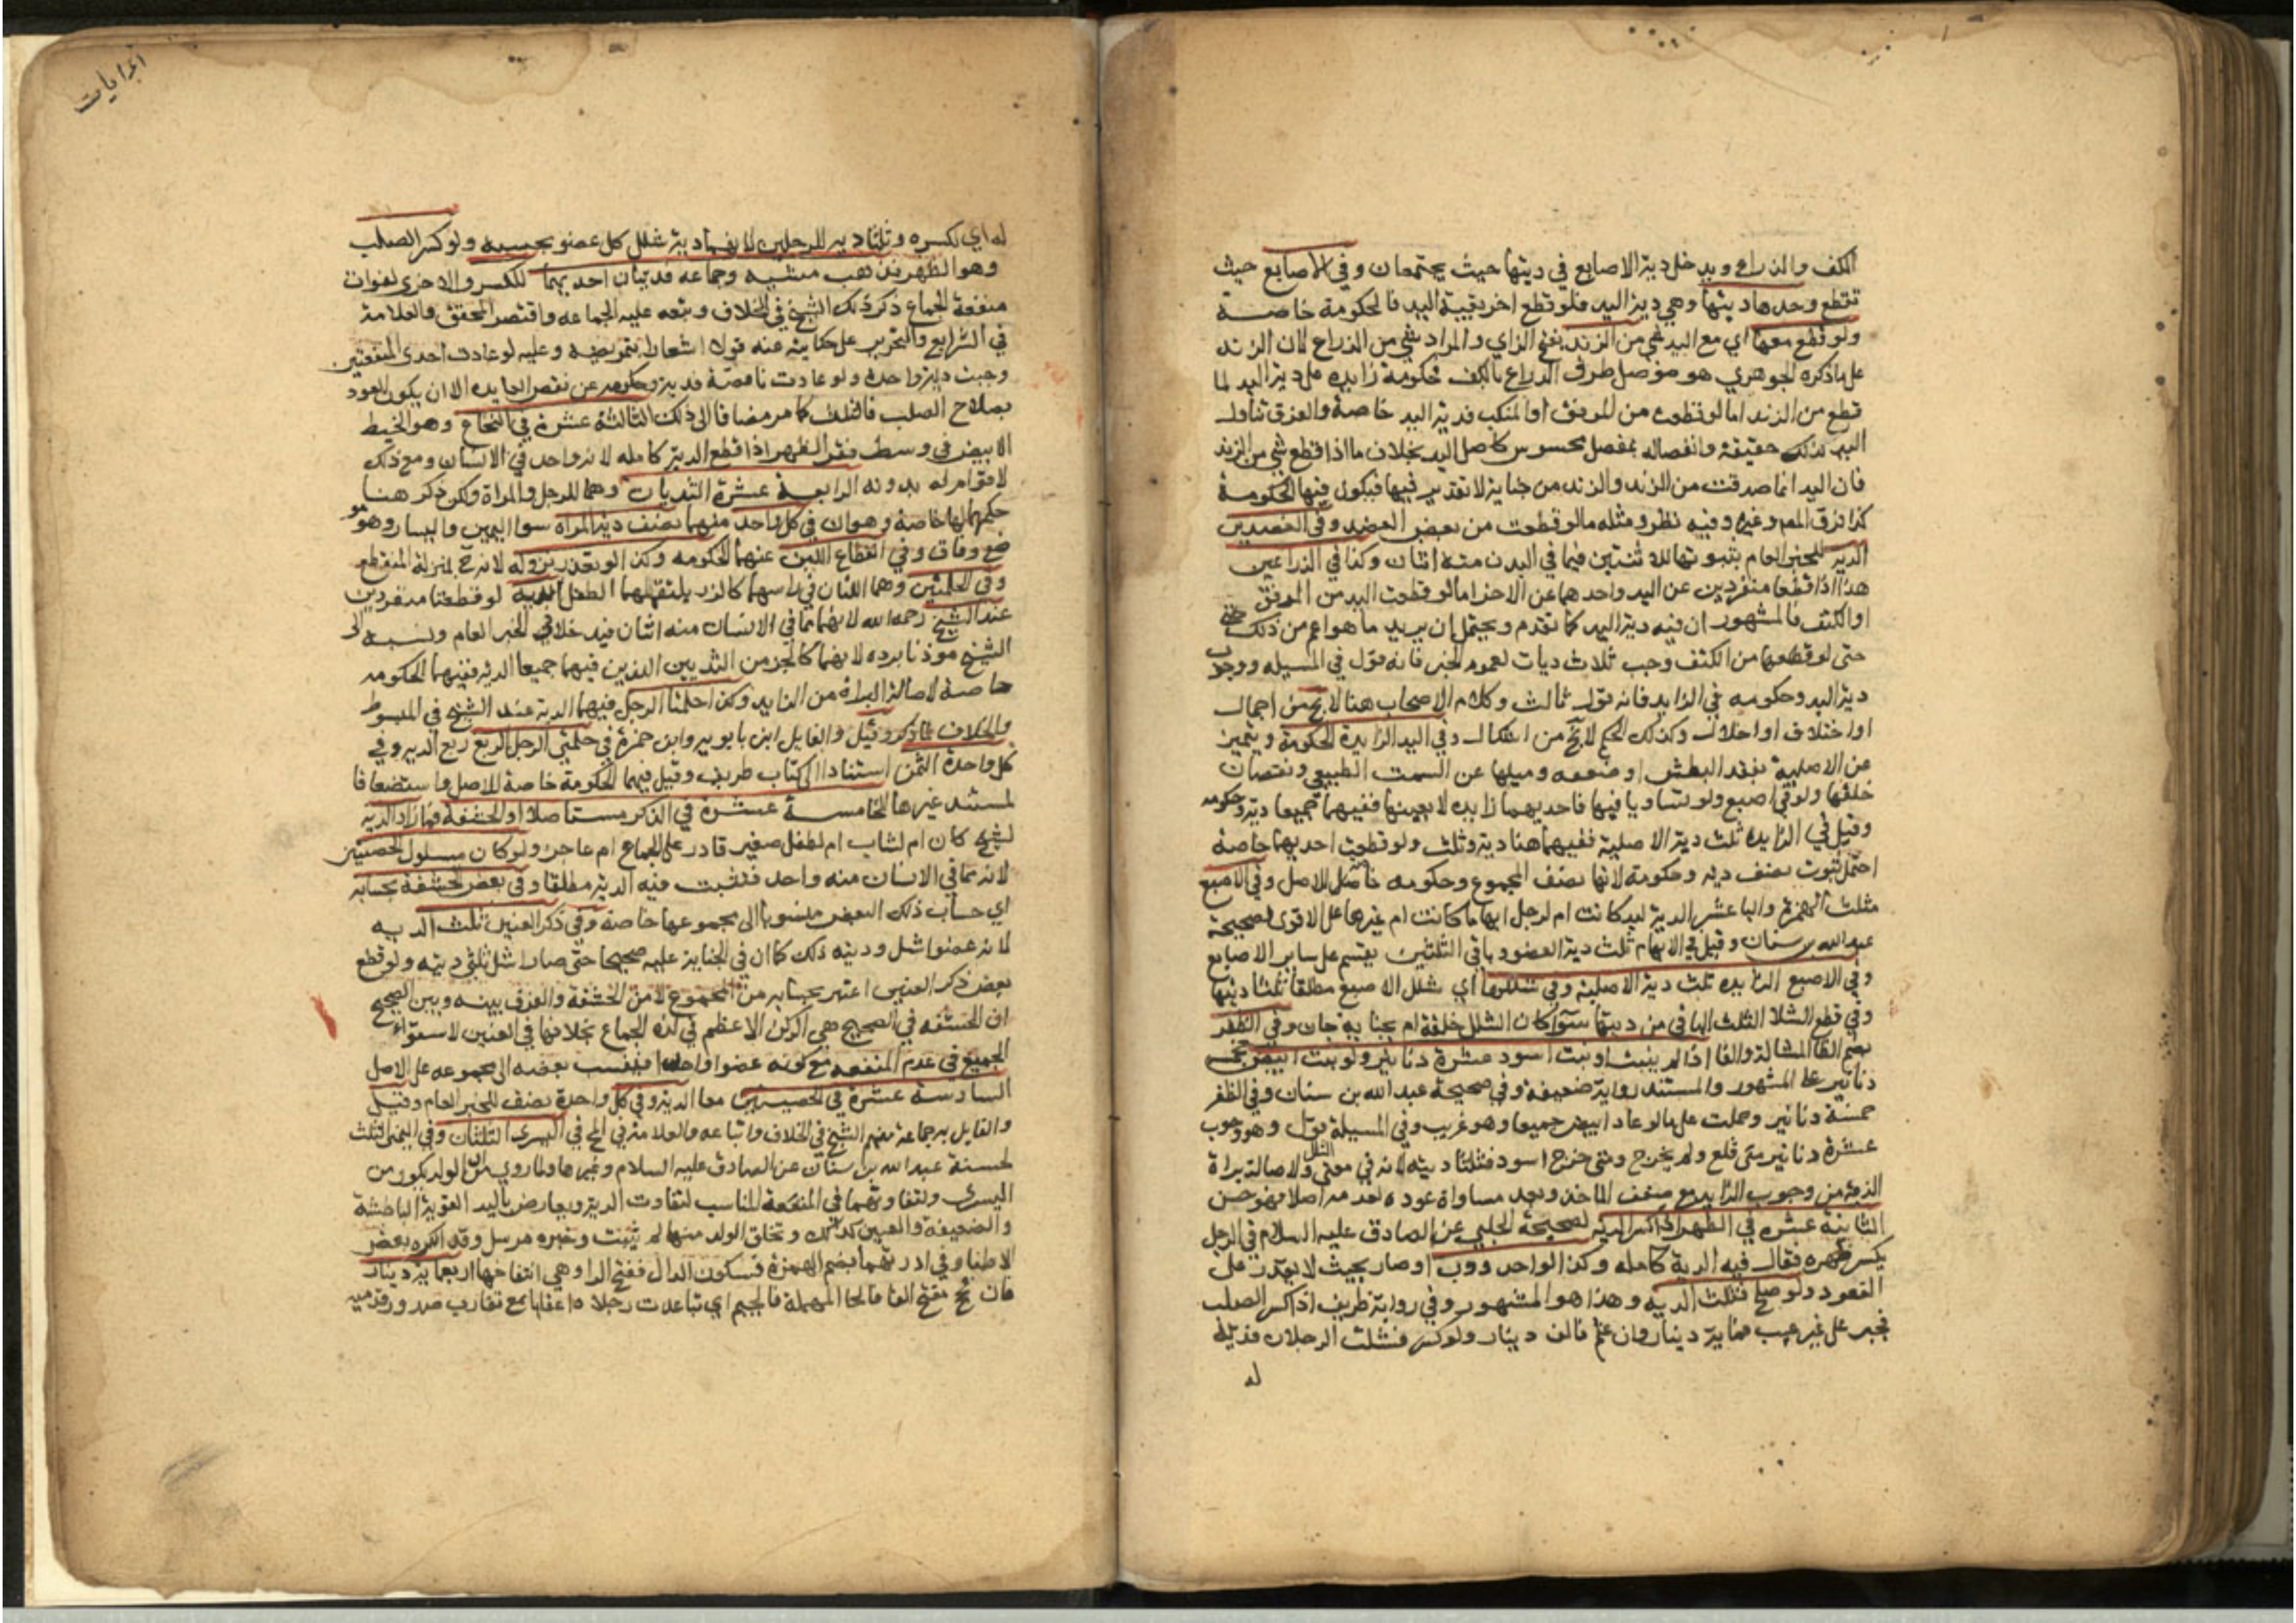 الكف والذراع ويدخل دية الاصابع في ديتها حيث يجتمعان وفي الاصابع حيث
تقطع وحدها ديتها وهي دية اليد فلو قطع اخر بقية اليد فالحكومة خاصة
ولو قطع معها اي مع اليد شي من الزند بفتح الزاي والمراد شي من الذراع لان الزند
على ما ذكره الجوهري هو موصل طرف الذراع بالكف فحكومة زايدة على دية اليد لما
قطع من الزند اما لو قطعت من المرفق او المنكب فدية اليد خاصة والفرق تناول
اليد لذلك حقيقة وانفصاله بمفصل محسوس كاصل اليد بخلاف ما اذا قطع شي من الزند
فان اليد انما صدقت من الزند والزند من جناية لا تقدير فيها فيكون فيها الحكومة
كذا فرق المص وغيره وفيه نظر ومثله ما لو قطعت من بعض العضد وفي العضدين
الدية للخبر العام بثبوتها للاثنين فيما في البدن منه اثنان وكذا في الذراعين
هذا اذا قطعا منفردين عن اليد واحدهما عن الاخر اما لو قطعت اليد من المرفق
او الكتف فالمشهور ان فيه دية اليد كما تقدم ويحتمل ان يريد ما هو اعم من ذلك
حتى لو قطعها من الكتف وجب ثلاث ديات لعموم الخبر فانه قول في المسيله ووجوب
دية اليد وحكومه في الزايد فانه قول ثالث وكلام الاصحاب هنا لا يخ من اجمال
او اختلاف او اخلال وكذلك الحكم لا يخ من اشكال وفي اليد الزايدة الحكومة ويتميز
عن الاصلية بفقد البطش او ضعفه وميلها عن السمت الطبيعي ونقصان
خلقها ولو في اصبع ولو تساويا فيها فاحديهما زايده لا بعينها ففيهما جميعا دية وحكومه
وقيل في الزايدة ثلث دية الاصلية ففيهما هنا دية وثلث ولو قطعت احديهما خاصة
احتمل ثبوت نصف دية وحكومة لانها نصف المجموع وحكومه خاصة للاصل وفي الاصبع
مثلث الهمزة والبا عشر الدية ليد كانت ام لرجل ابهاما كانت ام غيرها على الاقوى لصحيحة
عبد الله بن سنان وقيل في الابهام ثلث دية العضو وباقي الثلثين يقسم على ساير الاصابع
وفي الاصبع الزايده ثلث دية الاصلية وفي شللها اي شلل الاصبع مطلقا ثلثا ديتها
وفي قطع الشلا الثلث الباقي من ديتها سوآ كان الشلل خلقة ام بجناية جان وفي الظفر
بضم الظا المشالة والفا اذا لم ينبت او نبت اسود عشرة دنانير ولو نبت ابيض خمسة
دنانير على المشهور والمستند رواية ضعيفة وفي صحيحة عبد الله بن سنان وفي الظفر
خمسة دنانير وحملت على ما لو عاد ابيض جميعا وهو غريب وفي المسيلة قول وهو وجوب
عشرة دنانير متى قلع ولم يخرج ومتى خرج اسود فثلثا ديته لانه في معنى الشلل ولاصالة براة
الذمة من وجوب الزايد مع ضعف الماخذ وبعد مساواة عوده لعدمه اصلا فهو حسن
الثانية عشره في الظهر اذا كسر الدية لصحيحة الحلبي عن الصادق عليه السلام في الرجل
يكسر ظهره فقال فيه الدية كامله وكذا لو احدودب او صار بحيث لا يقدر على
القعود ولو صلح فثلث الدية وهذا هو المشهور وفي رواية ظريف اذا كسر الصلب
فجبر على غير عيب فماية دينار وان عثم فالف دينار ولو كسر فشلت الرجلان فدية
له
الديات
له اي لكسره وثلثا دية للرجلين لانهما دية شلل كل عضو بحسبه ولو كسر الصلب
وهو الظهر فذهب مشيه وجماعه فديتان احديهما للكسر والاخرى لفوات
منفعة الجماع ذكر ذلك الشيخ في الخلاف وتبعه عليه الجماعه واقتصر المحقق والعلامة
في الشرايع والتحرير على حكايته عنه قولا اشعارا بتمريضه وعليه لو عادت احدى المنفعتين
وجبت دية واحدة ولو عادت ناقصة فدية وحكومه عن نقص العايده الا ان يكون العود
بصلاح الصلب فالثلث كما مر مضافا الى ذلك الثالثة عشرة في النخاع وهو الخيط
الابيض في وسط فقر الظهر اذا قطع الدية كامله لانه واحد في الانسان ومع ذلك
لا قوام له بدونه الرابعة عشرة الثديان وهما للرجل والمراة ولكن ذكر هنا
حكمهما لها خاصة وهو ان في كل واحد منهما نصف دية المراه سوا اليمين واليسار وهو مو
ضع وفاق وفي انقطاع اللبن عنهما الحكومه وكذا لو تعذر نزوله لانه ح بمنزلة المنقطع
وفي الحلمتين وهما اللتان في راسهما كالزر يلتقمهما الطفل الدية لو قطعتا منفردين
عند الشيخ رحمه الله لانهما مما في الانسان منه اثنان فيدخلان في الخبر العام ونسبه الى
الشيخ مؤذنا برده لانهما كالجزء من الثديين الذين فيهما جميعا الدية ففيهما الحكومه
خاصة لاصالة البراة من الزايد وكذا حلمتا الرجل فيهما الدية عند الشيخ في المبسوط
والخلاف لما ذكر وقيل والقايل ابن بابويه وابن حمزة في حلمتي الرجل الربع ربع الديه وفي
كل واحدة الثمن استنادا الى كتاب ظريف وقيل فيهما الحكومة خاصة للاصل واستضعافا
لمستند غيرها الخامسة عشرة في الذكر مستاصلا او الحشفة فما زاد الدية
لشيخ كان ام لشاب ام لطفل صغير قادر على الجماع ام عاجز ولو كان مسلول الخصيتين
لانه مما في الانسان منه واحد فتثبت فيه الدية مطلقا وفي بعض الحشفة بحسابه
اي حساب ذلك البعض منسوبا الى مجموعها خاصة وفي ذكر العنين ثلث الديه
لانه عضو اشل وديته ذلك كما ان في الجناية عليه صحيحا حتى صار اشل ثلثي ديته ولو قطع
بعض ذكر العنين اعتبر بحسابه من المجموع لا من الحشفة والفرق بينه وبين الصحيح
ان الحشفه في الصحيح هي الركن الاعظم في لذة الجماع بخلافها في العنين لاستواء
الجميع في عدم المنفعه مع كونه عضوا واحدا فينسب بعضه الى مجموعه على الاصل
السادسة عشرة في الخصيتين معا الدية وفي كل واحدة نصف للخبر العام وقيل
والقايل به جماعة منهم الشيخ في الخلاف واتباعه والعلامة في المخ في اليسرى الثلثان وفي اليمنى الثلث
لحسنة عبد الله بن سنان عن الصادق عليه السلام وغيرها ولما روي من ان الولد يكون من
اليسرى ولتفاوتهما في المنفعة المناسب لتفاوت الدية ويعارض باليد القوية الباطشة
والضعيفة والعين كذلك وتخلق الولد منها لم يثبت وخبره مرسل وقد انكره بعض
الاطبا وفي ادرتهما بضم الهمزة فسكون الدال ففتح الرا وهي انتفاخهما اربعماية دينار
فان فحج بفتح الفا فالحا المهملة فالجيم اي تباعدت رجلاه اعقابا مع تقارب صدور قدميه